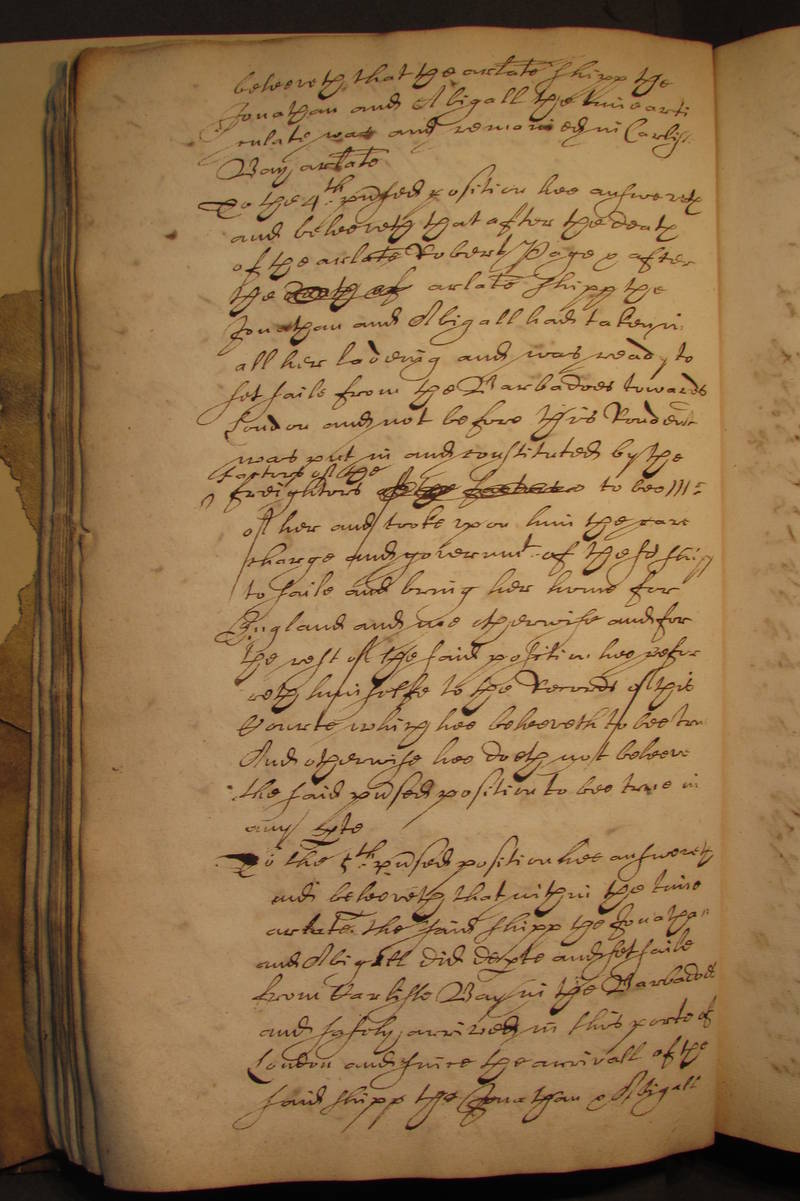 beleeveth that the arlate shipp the
Jonathan and Abigall the time arti
culate was and remained in Carlisle
Bay arlate
To the 4th pnsed position hee answereth
and beleeveth that after the death
of the arlate Robert Page & after
the death of arlate shipp the
Jonathan and Abigall had taken in
all her lading and was ready to
set saile from the Barbadoes towards
London and not before this Rondent
was put in and constituted by the
factors of the
freightors to bee Mr
of her and tooke upon him the care
charge and governmt of the sd shipp
to saile and bring her home for
England and noe otherwise and for
the rest of the said position hee refer
reth himselfe to the Records of this
Courte which hee beleeveth to bee true
And otherwise hee doeth not beleeve
the said pnsed position to bee true in
any pte
To the 5th pnsed position hee answereth
and beleeveth that within the time
arlate the said shipp the Jonathan
and Abigall did depte and set saile
from Carlisle Bay in the Barbadoes
and safely arrived in this porte of
London and since the arrivall of the
said shipp the Jonathan & Abigall